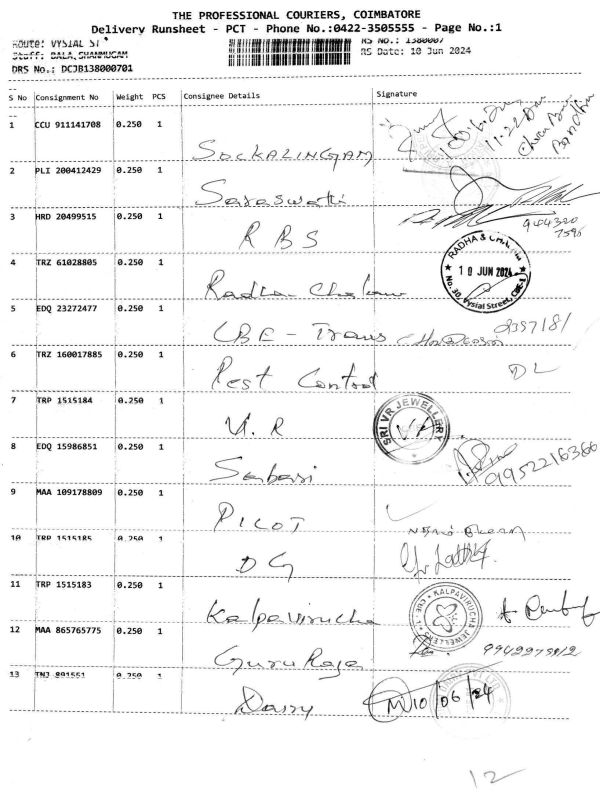 THE PROFESSIONAL COURIERS, COIMBATORE
Delivery Runsheet - PCT - Phone No.:0422-3505555 - Page No.:1
Route: VYSIAL ST
RS No.: 1380007
Staff: BALA SHANMUGAM
RS Date: 10 Jun 2024
DRS No.: DCJB138000701
S No Consignment No Weight PCS Consignee Details Signature
1 CCU 911141708 0.250 1 SOCKALINGAM
2 PLI 200412429 0.250 1 Saraswathi
3 HRD 20499515 0.250 1 RBS
944320
4 TRZ 61028805 0.250 1 Radha
RADHA &
10 JUN 2024
No.30, Vysial Street, CBE-1
5 EDQ 23272477 0.250 1 CBE - Trans
6 TRZ 160017885 0.250 1 Pest Control DL
7 TRP 1515184 0.250 1 V.R
SRI VR JEWELLERY
8 EDQ 15986851 0.250 1 Sabari 9952216366
9 MAA 109178809 0.250 1 PILOT
10 TRP 1515185 0.250 1 DG
11 TRP 1515183 0.250 1 Kalpavirucha
KALPAVIRUCHA JEWELLERS CBE-1
12 MAA 865765775 0.250 1 Guru Raja
13 TNJ 891551 0.250 1
10/06/24
12